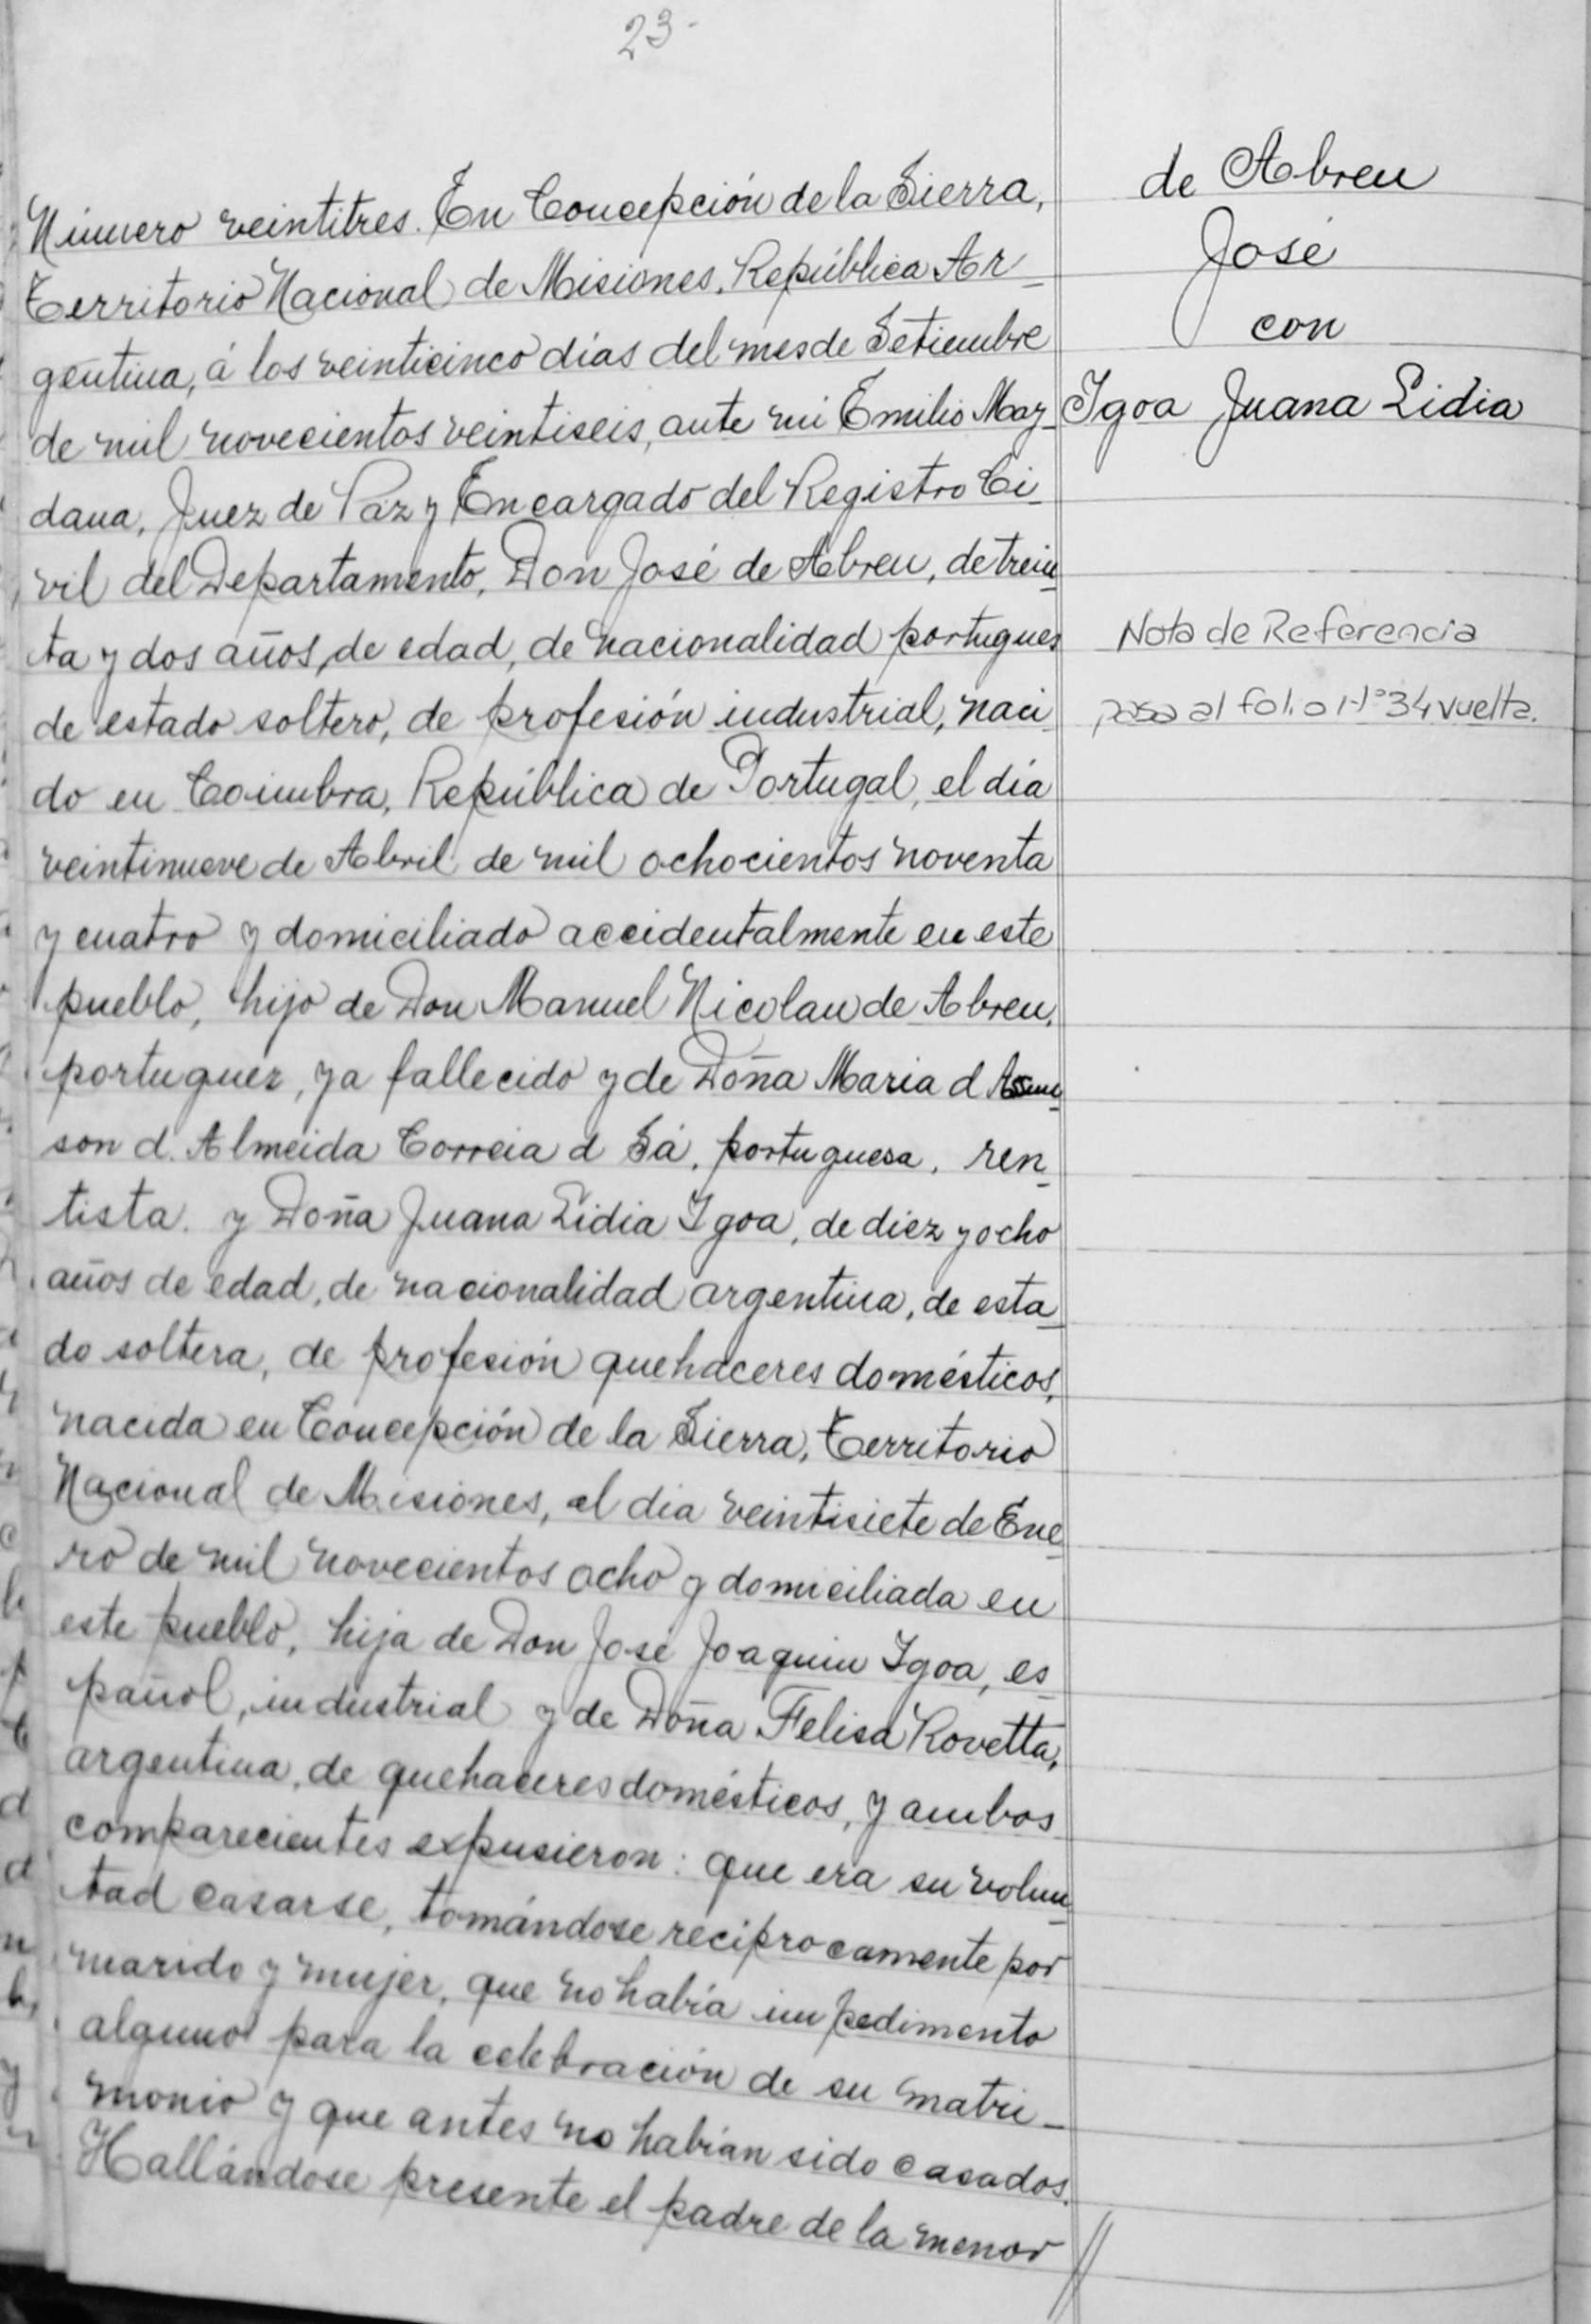 23-
Número veintitres. En Concepción de la Sierra,
Territorio Nacional de Misiones, República Ar-
gentina, á los veinticinco días del mes de Setiembre
de mil novecientos veintiseis, ante mi Emilio Maz-
dana, Juez de Paz y Encargado del Registro Ci-
vil del Departamento, Don José de Abreu, de trein-
ta y dos años, de edad, de nacionalidad portugues
de estado soltero, de profesión industrial, naci-
do en Coimbra, República de Portugal, el día
veintinueve de Abril de mil ochocientos noventa
y cuatro y domiciliado accidentalmente en este
pueblo, hijo de Don Manuel Nicolau de Abreu,
portugués, ya fallecido y de Doña Maria d Asun-
son d. Almeida Correia d Sá, portuguesa, ren-
tista. y Doña Juana Lidia Igoa, de diez y ocho
años de edad, de nacionalidad argentina, de esta-
do soltera, de profesión quehaceres domésticos,
nacida en Concepción de la Sierra, Territorio
Nacional de Misiones, el dia veintisiete de Ene-
ro de mil novecientos ocho y domiciliada en
este pueblo, hija de Don José Joaquin Igoa, es-
pañol, industrial y de Doña Felisa Rovetta,
argentina, de quehaceres domésticos, y ambos
comparecientes expusieron: que era su volun-
tad casarse, tomándose reciprocamente por
marido y mujer, que no había impedimento
alguno para la celebración de su matri-
monio y que antes no habían sido casados.
Hallándose presente el padre de la menor //
de Abreu
José
con
Igoa Juana Lidia
Nota de Referencia
pasa al folio Nº 34 vuelta.